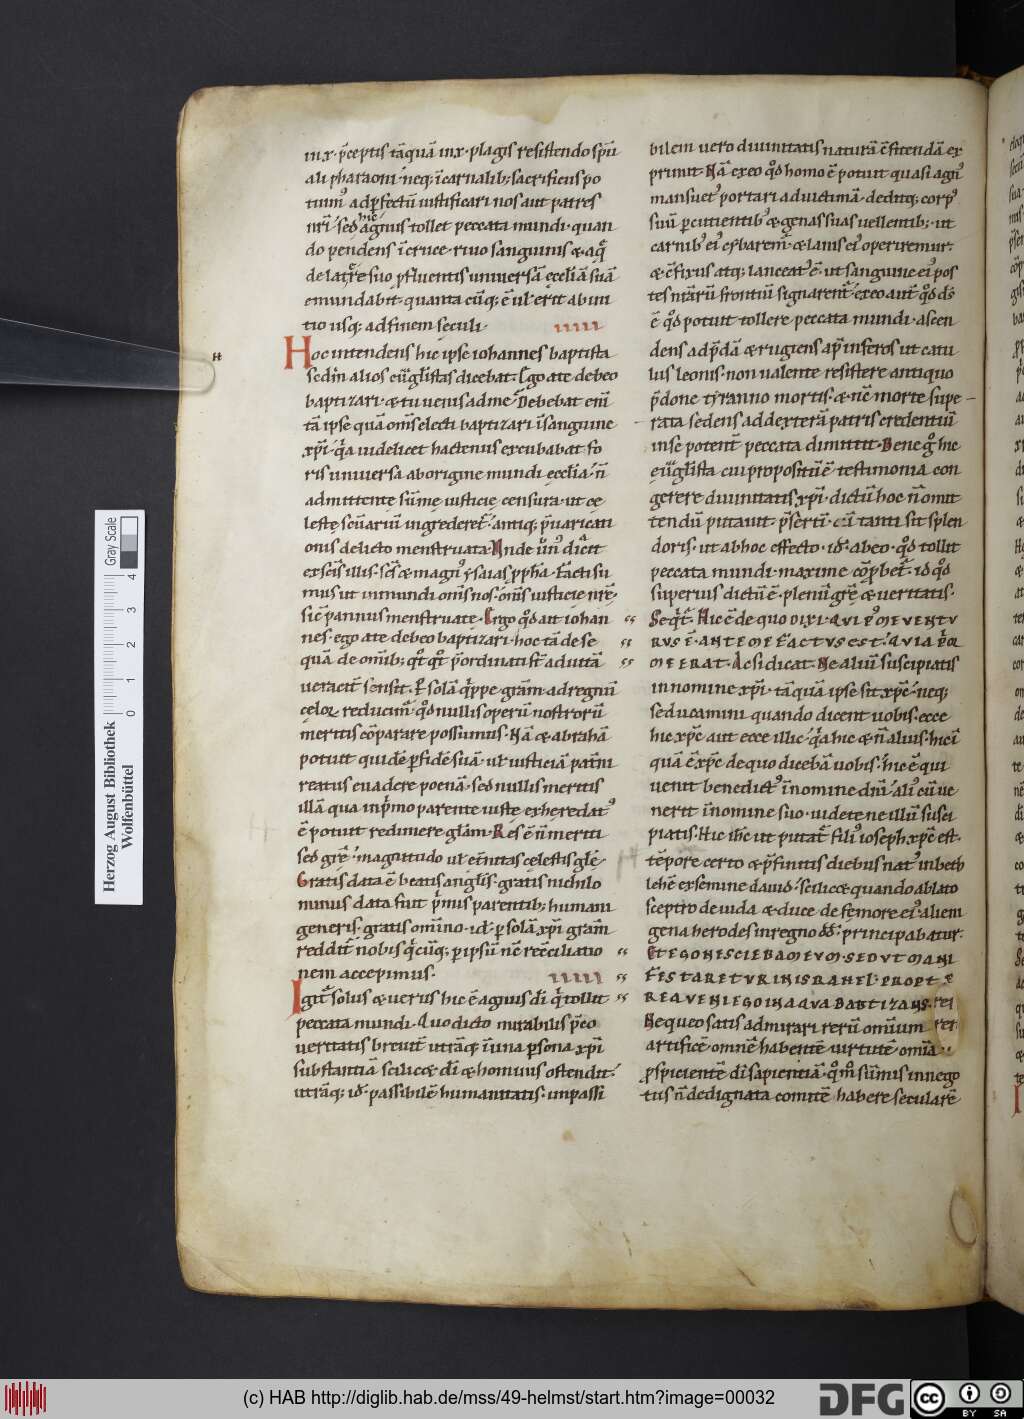 in·x·p̄ceptis tāquā in·x·plagis resistendo sp̄ū
ali pharaoni· neq; ī carnalib; sacrificiis po
tuim᷒ ad p̱fectū iustificari nos aut patres
nr̄i· sed hic agnus tollet peccata mundi· quan
do pendens ī cruce· riuo sanguinis & aq̄
de latere suo p̱fluentis uniuersā ęcclīā suā
emundabit· quanta cūq; ē ul̄ erit ab ini
tio usq; ad finem sęculi·
Hoc intendens hic ipse iohannes baptista
sed in alios eug̃listas dicebat· Ego a te debeo
baptizari· & tu uenis ad me· Debebat eni
tā ipse quā om̄s electi baptizari ī sanguine
xp̄i· q̄a uidelicet hactenus excubabat fo
ris uniuersa ab origine mundi ęcclīa· n̄
admittente sūmę iusticię censura· ut cę
lestę sc̄uariū ingrederet᷒· antiq; p̄uaricati
onis delicto menstruata· Unde un᷒ dicit
ex sc̄is illis· sc̄s & magn᷒ ysaias pp̄ha· Facti su
mus ut inmundi om̄s nos· om̄s iusticię nr̄ę·
sic pannus menstruatę· Ergo qd̄ ait iohan
nes· ego a te debeo baptizari· hoc tā de se
quā de om̄ib; qt̄qt̄ p̄ordinati st̄ ad uitā
ueracit̄ sensit· P̱ solā q̄ppe grām ad regnū
cęloꝝ reducim᷒· qd̄ nullis operū nostrorū
meritis cōparare possumus· Nā & abrahā
potuit quidē p̱ fidē suā· ul̄ iusticiā pat̄ni
reatus euadere poenā· sed nullis meritis
illā qua in p̄mo parente iuste exheredat᷒
ē potuit redimere glām· Res ē n̄ meriti
sed grę· magnitudo ul̄ et̄nitas cęlestis glę·
Gratis data ē beatis anglis· gratis nichilo
minus data fuit p̄mus parentib; humani
generis· gratis om̄ino· id· p̱ solā xp̄i grām
reddit̄ nobis q̄cūq; p̱ ipsū nc̄ recc̄iliatio
nem accepimus·
Igit̄ solus & uerus hic ē agnus dī q̄ tollit
peccata mundi· Quo dicto mirabilis p̄co
ueritatis breuit̄ utrāq; ī una p̱sona xp̄i
substantiā scilic& dī & hominis ostendit·
utrāq; id· passibilē humanitatis· inpassi
bilem uero diuinitatis naturā cf̄itendā ex
primit· Nā ex eo qd̄ homo ē potuit quasi agn᷒
mansuet᷒ portari ad uictimā· deditq; corp᷒
suū percutientib᷒ & genas suas uellentib;· ut
carnib᷒ ei᷒ cibaremr̄ & lanis ei᷒ operiremur·
& cf̄ixus atq; lanceat᷒ ē· ut sanguine ei᷒ pos
tes nr̄arū frontiū signarent̄· ex eo aut̄ qd̄ ds̄
ē qd̄ potuit tollere peccata mundi· ascen
dens ad p̄dā & rugiens ap̱ inferos ut catu
lus leonis· non ualente resistere antiquo
p̄done tyranno mortis· & nc̄ morte supe
rata sedens ad dexterā patris credentiū
in se potent̄ peccata dimittit· Bene g̊ hic
eug̃lista cui propositū ē testimonia con
gerere diuinitatis xp̄i· dictū hoc n̄ omit
tendū putauit p̄serti· cū tanti sit splen
doris· ut ab hoc effecto· id· ab eo· qd̄ tollit
peccata mundi· maxime cōp̱bet̄· id qd̄
superius dictū ē· plenū grę & ueritatis·
Seqt̄· Hic ē de quo DIXI· QVI P᷒ ME VENTV
RVS E· ANTE ME FACTVS EST· QVIA P̄OR
ME ERAT· Ac si dicat· Ne aliū suscipiatis
in nomine xp̄i· tāquā ipse sit xp̄c· neq;
seducamini quando dicent uobis· ecce
hic xp̄c aut ecce illic· q̄a hic & n̄ alius· hic ī
quā ē xp̄c de quo dicebā uobis· hic ē qui
uenit benedict᷒ ī nomine dn̄i· ali᷒ cū ue
nerit ī nomine suo· uidete ne illū susci
piatis· Hic n̄c ut putat᷒ fili᷒ ioseph xp̄c est·
tēpore certo & p̄finitis diebus nat᷒ in beth
lehē ex semine dauid· scilic& quando ablato
sceptro de iuda & duce de femore ei᷒· alieni
gena herodes in regno dd̄· principabatur·
ET EGO NESCIEBAM EVM· SED VT MANI
FESTARETVR IN ISRAHEL· PROPTE
REA VENI EGO IN AQVA BAPTIZANS·
Nequeo satis admirari rerū omnium
artificē omnē habentē uirtutē· omīa
p̱spicientē dī sapientiā· qm̄ sūmis in nego
tiis n̄ dedignata comitē habere secularē
Herzog August Bibliothek
Wolfenbüttel
Gray Scale
0 1 2 3 4
(c) HAB http://diglib.hab.de/mss/49-helmst/start.htm?image=00032
DFG
cc
BY SA